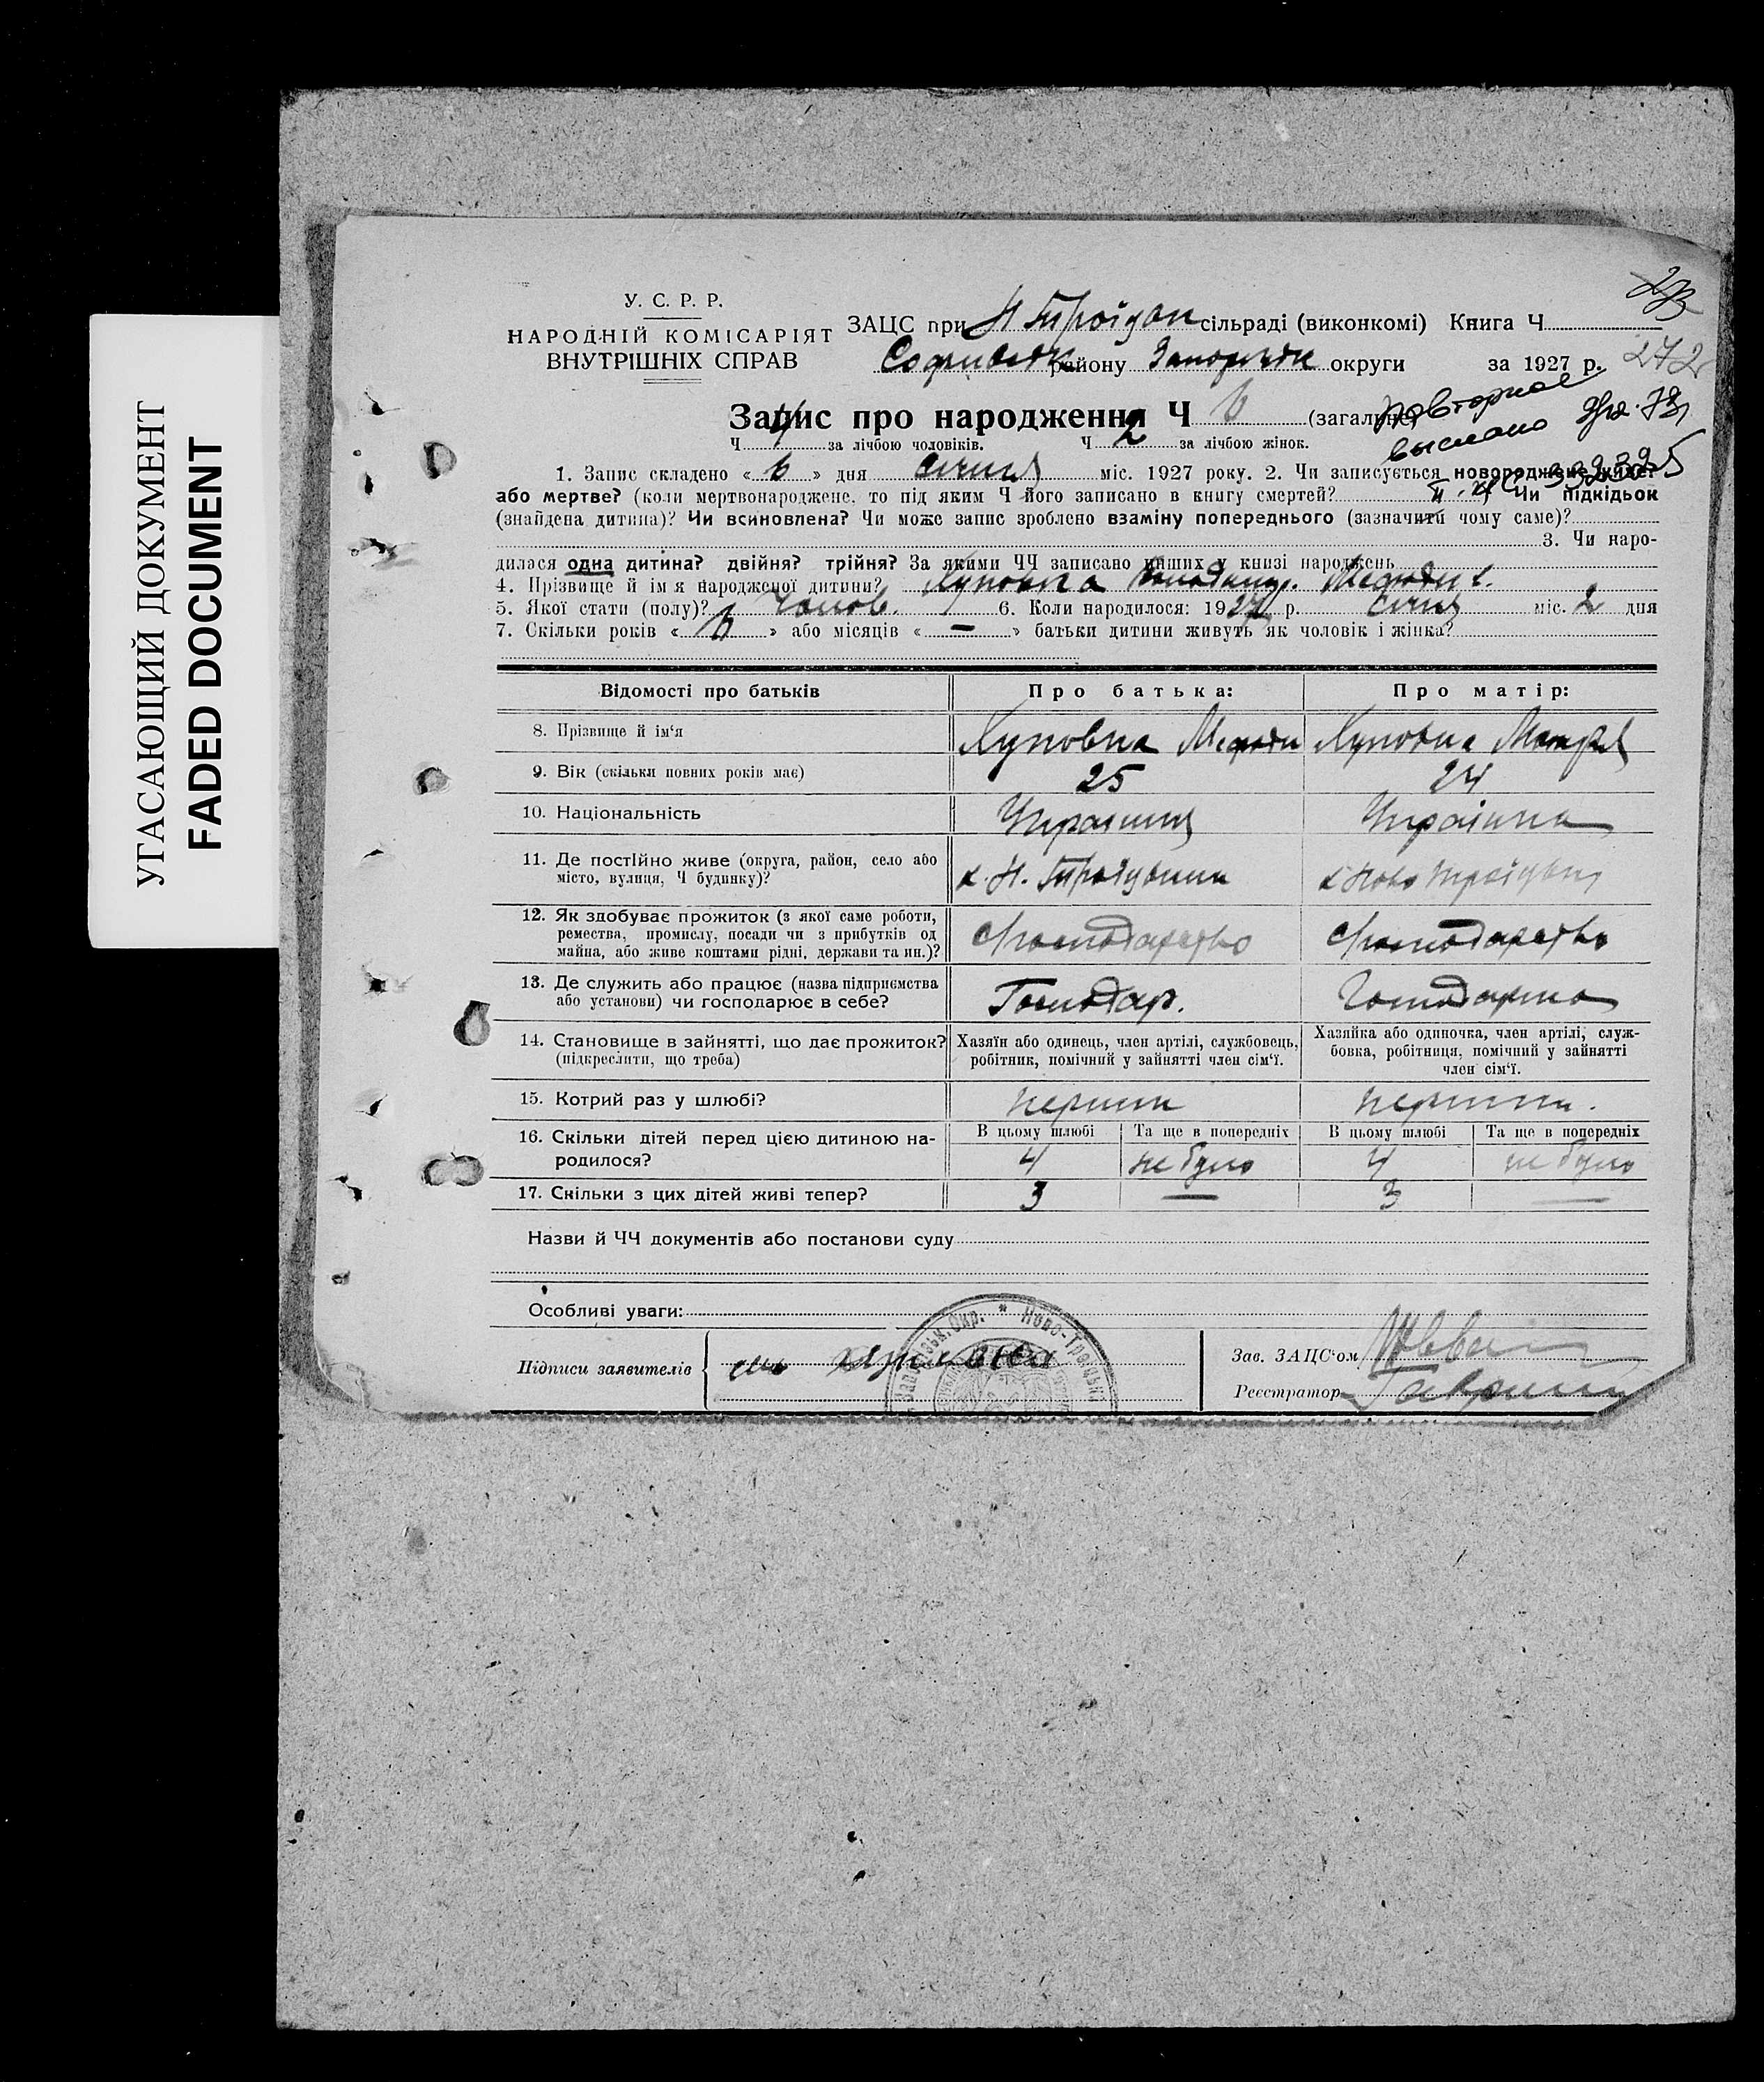 УГАСАЮЩИЙ ДОКУМЕНТ
FADED DOCUMENT
У. С. Р. Р.
НАРОДНІЙ КОМІСАРІЯТ
ВНУТРІШНІХ СПРАВ
ЗАЦС при Н Троїцьк сільраді (виконкомі) Книга Ч
района Запорізьк округи за 1927 р. 272
Запис про народження Ч 6 (загальне) повторное
Ч 4 за лічбою чоловіків. Ч 2 за лічбою жінок. выслано
1. Запис складено « 6 » дня Січня міс. 1927 року. 2. Чи записується новороджене живе?
або мертве? (коли мертвонароджене, то під яким Ч його записано в книгу смертей? Чи підкідьок
(знайдена дитина)? Чи всиновлена? Чи може запис зроблено взаміну попереднього (зазначити чому саме)?
3. Чи наро-
дилася одна дитина? двійня? трійня? За якими ЧЧ записано инших у книзі народжень
4. Прізвище й ім'я народженої дитини?
5. Якої стати (полу)? Чолов. 6. Коли народилося: 1927 р. Січня міс. 2 дня
7. Скільки років « 6 » або місяців « — » батьки дитини живуть як чоловік і жінка?
Відомості про батьків Про батька: Про матір:
8. Прізвище й ім'я
9. Вік (скільки повних років має) 25 24
10. Національність Українця Українка
11. Де постійно живе (округа, район, село або
місто, вулиця, Ч будинку)?
12. Як здобуває прожиток (з якої саме роботи,
ремества, промислу, посади чи з прибутків од
майна, або живе коштами рідні, держави та ин.)? Господарство Господарство
13. Де служить або працює (назва підприємства
або установи) чи господарює в себе? Господар. Господарка
14. Становище в зайнятті, що дає прожиток?
(підкреслити, що треба)
Хазяїн або одинець, член артілі, службовець,
робітник, помічний у зайнятті член сім'ї.
Хазяйка або одиночка, член артілі, служ-
бовка, робітниця, помічний у зайнятті
член сім'ї.
15. Котрий раз у шлюбі?
16. Скільки дітей перед цією дитиною на-
родилося?
В цьому шлюбі Та ще в попередніх В цьому шлюбі Та ще в попередніх
4 не було 4 не було
17. Скільки з цих дітей живі тепер? 3 — 3 —
Назви й ЧЧ документів або постанови суду
Особливі уваги:
Підписи заявителів
Зав. ЗАЦС'ом
Реєстратор